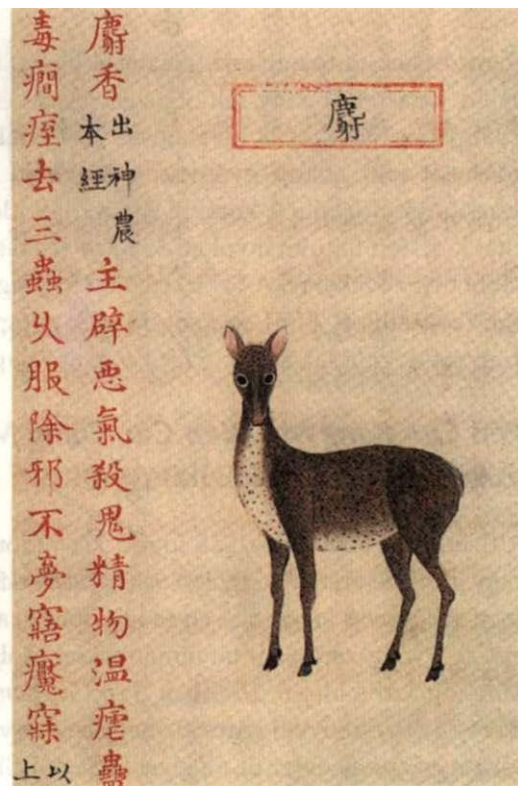 麝
麝香
出神農
本經
主辟悪氣殺鬼精物温瘧蠱
毒癎痓去三蟲久服除邪不夢窹魘寐
以
上